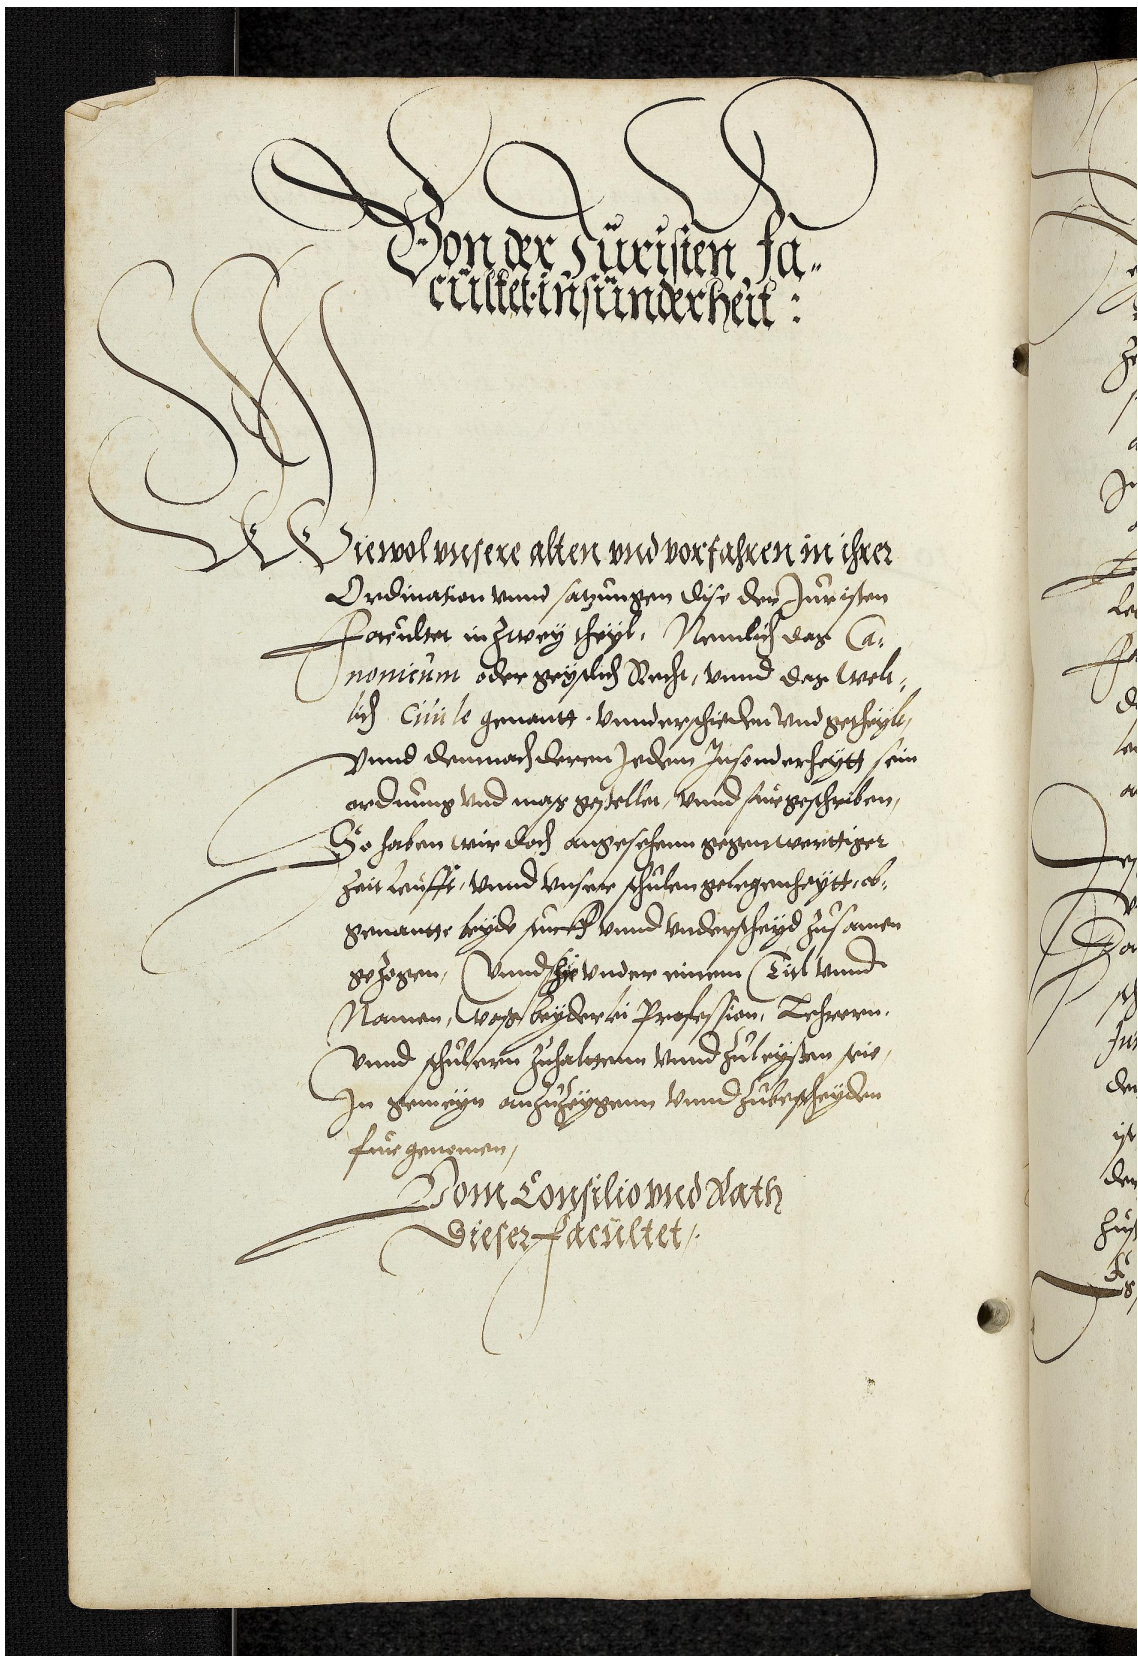 Von der Juristen Fa„
cultet insunderheit :
Wiewol unsere alten vnd vorfahren in ihrer
Ordination vnnd satzungen dise der Juristen
Facultet in zwey theyl, Nemlich das Ca„
nonicum oder geystlich Recht, vnnd das welt„
lich Ciuile genantt vnnderschieden vnd getheylt,
vnnd demnach deren Jedem Insonderheytt sein
ordnung vnd mass gestellet, vnnd fürgeschriben,
So haben wir doch angesehenn gegenwerttiger
zeit leüfft, vnnd vnserer schulen gelegenheytt, ob„
genantte beyde stuckh vnnd vnderscheyd zusamen
gezogen, vnnd hie vnder einem Titl vnnd
Namen, wass beyderlei Profession, Lehrern,
vnnd schulern zuhaltenn vnnd zuleysten seie,
In gemeyn anzuzeygenn vnnd zubescheyden
fürgenomen,
Vom Consilio vnd Rath
dieser Facultet,